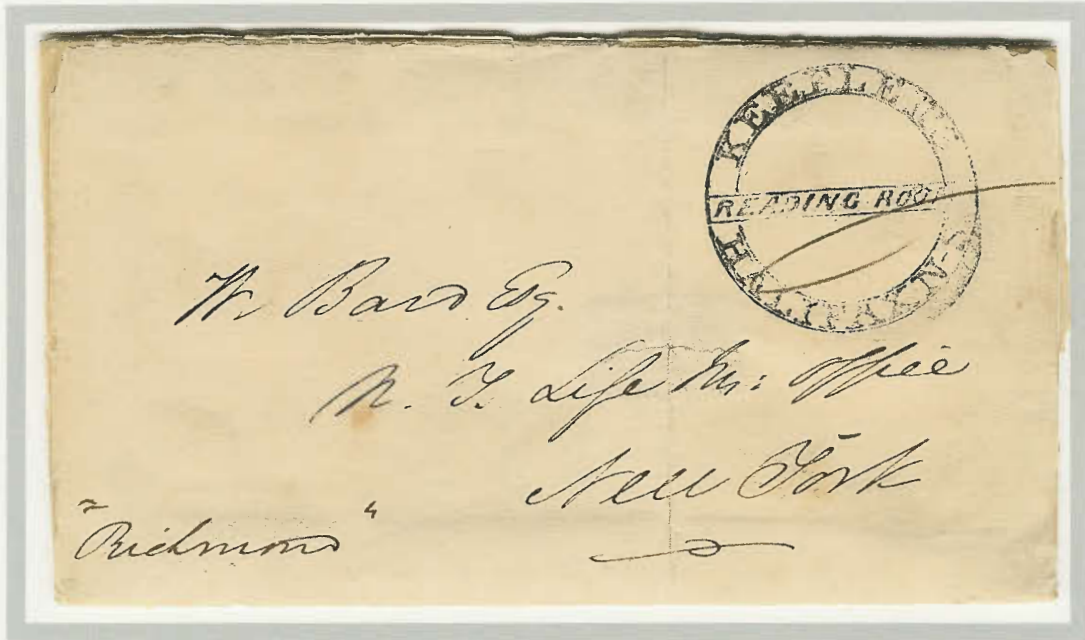 KEEFLER'S
READING ROOM
HALIFAX N-S
W. Bard Esq.
N. Y. Life Ins: Office
New York
"Richmond"